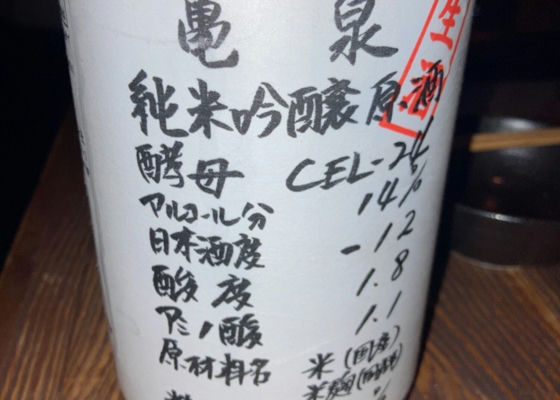 亀泉
生
純米吟醸原酒
酵母 CEL-24
アルコール分 14%
日本酒度 -12
酸度 1.8
アミノ酸 1.1
原材料名 米(国産)
米麹(国産米)